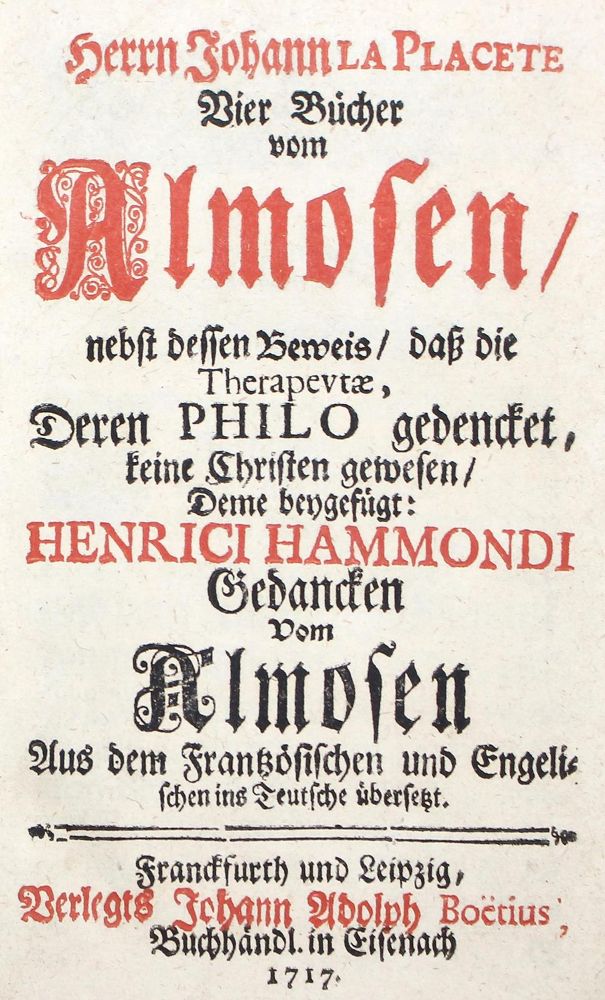 Herrn Johann LA PLACETE
Vier Bücher
vom
Almosen/
nebst dessen Beweis/ daß die
Therapevtæ,
Deren PHILO gedencket,
keine Christen gewesen/
Deme beygefügt:
HENRICI HAMMONDI
Gedancken
Vom
Almosen
Aus dem Frantzösischen und Engeli-
schen ins Teutsche übersetzt.
Franckfurth und Leipzig,
Verlegts Johann Adolph Boëtius,
Buchhändl. in Eisenach
1717.